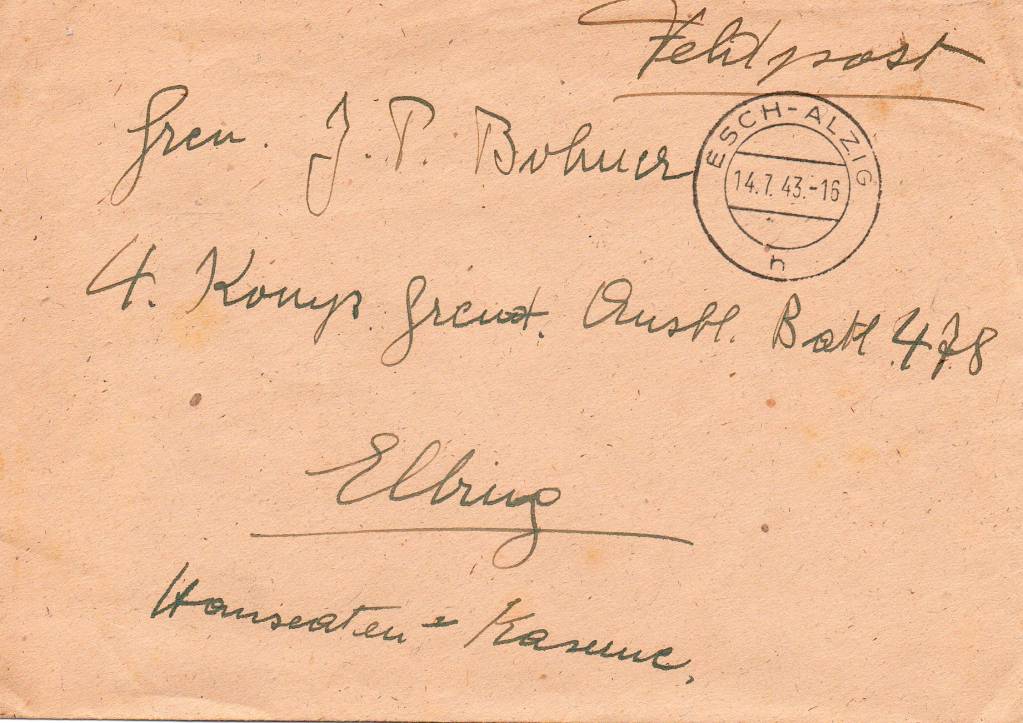 Feldpost
Gren. J. P. Bohner
ESCH-ALZIG
14.7.43.-16
h
4. Komp. Grend. Ausbl. Batl. 478
Elbing
Hanseaten-Kaserne.